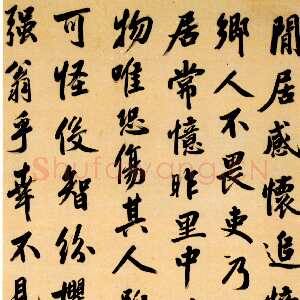 閒居感懷追憶
鄉人不畏吏乃
居常憶昨里中
物唯恐傷其人
可怪俊智紛攖
强翁乎幸不見
Shufawang.CN